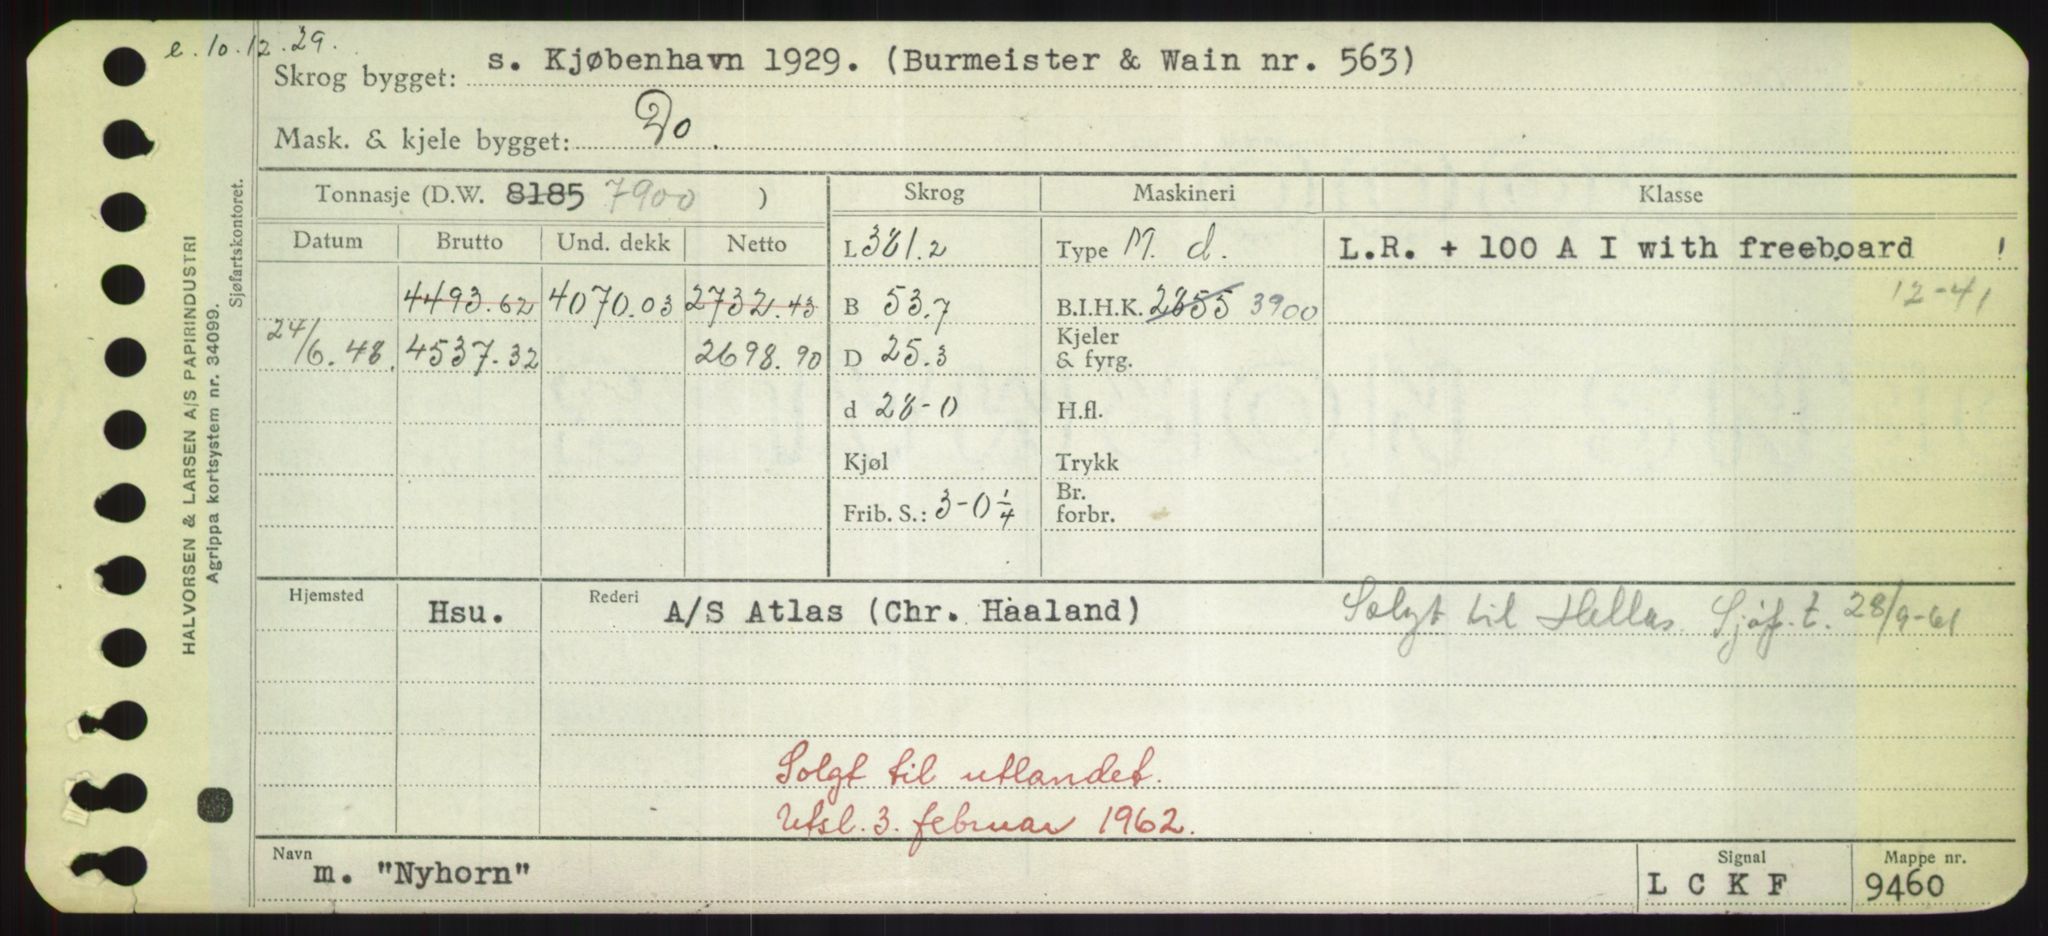 e. 10.12.29.
Skrog bygget: s. Kjøbenhavn 1929. (Burmeister & Wain nr. 563)
Mask. & kjele bygget: Do.
Tonnasje (D.W. 8185 7900 )
Skrog
Maskineri
Klasse
Datum
Brutto
Und. dekk
Netto
L 381.2
Type M. d.
L.R. + 100 A I with freeboard !
4493.62
4070.03
2732.43
B 53.7
B.I.H.K. 2855 3900
12-41
24/6.48.
4537.32
2698.90
D 25.3
Kjeler
& fyrg.
d 28-0
H.fl.
Kjøl
Trykk
Frib. S.: 3-0 1/4
Br.
forbr.
Hjemsted
Hsu.
Rederi
A/S Atlas (Chr. Haaland)
Solgt til Hellas. Sjøf. t. 28/9-61
Solgt til utlandet.
Utsl. 3. februar 1962.
Navn
m. "Nyhorn"
Signal
L C K F
Mappe nr.
9460
HALVORSEN & LARSEN A/S PAPIRINDUSTRI
Agrippa kortsystem nr. 34099.
Sjøfartskontoret.